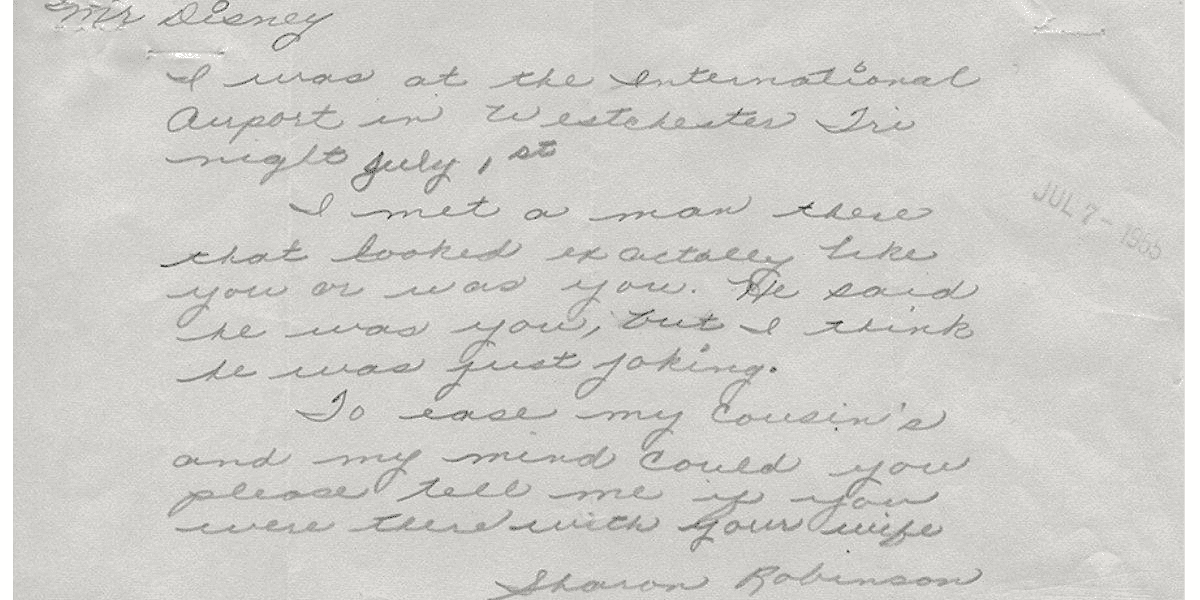 Mr Disney
I was at the International
Airport in Westchester Fri
night July 1st
I met a man there
that looked exactally like
you or was you. He said
he was you, but I think
he was just joking.
To ease my cousin's
and my mind could you
please tell me if you
were there with your wife
Sharon Robinson
JUL 7 - 1955